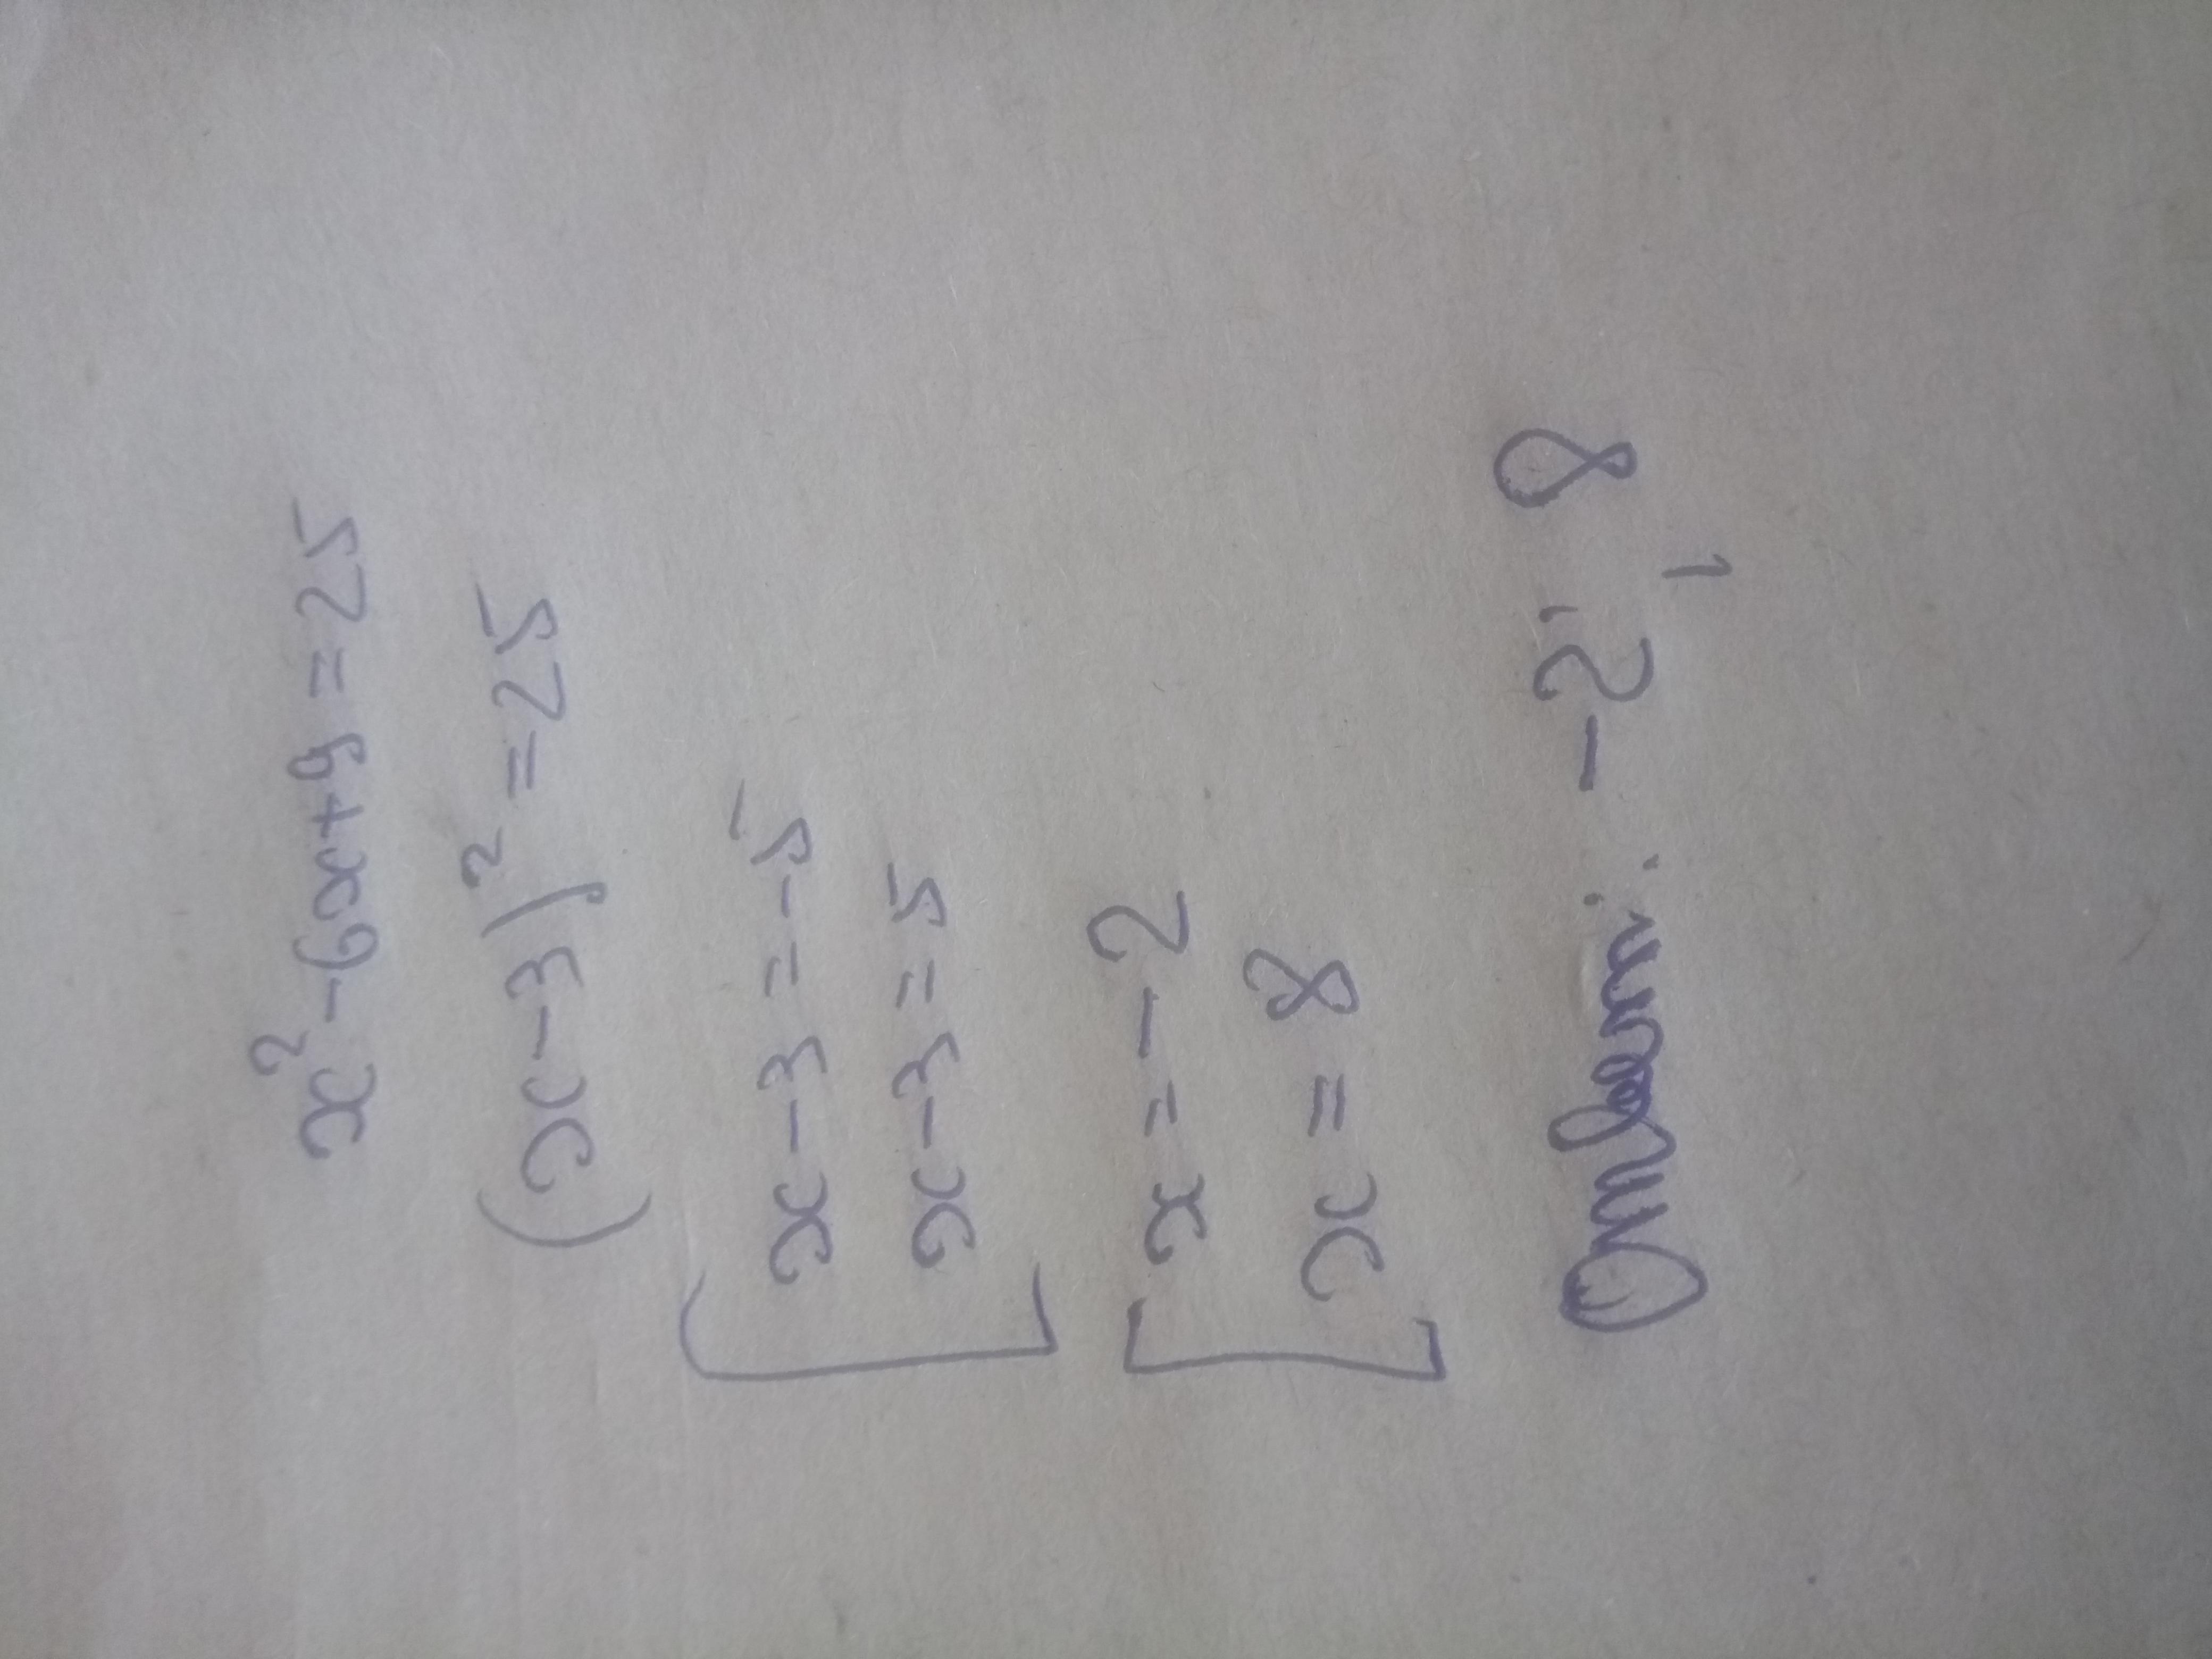 x² - 6x + 9 = 25
(x - 3)² = 25
x - 3 = -5
x - 3 = 5
x = -2
x = 8
Ответ: -2; 8